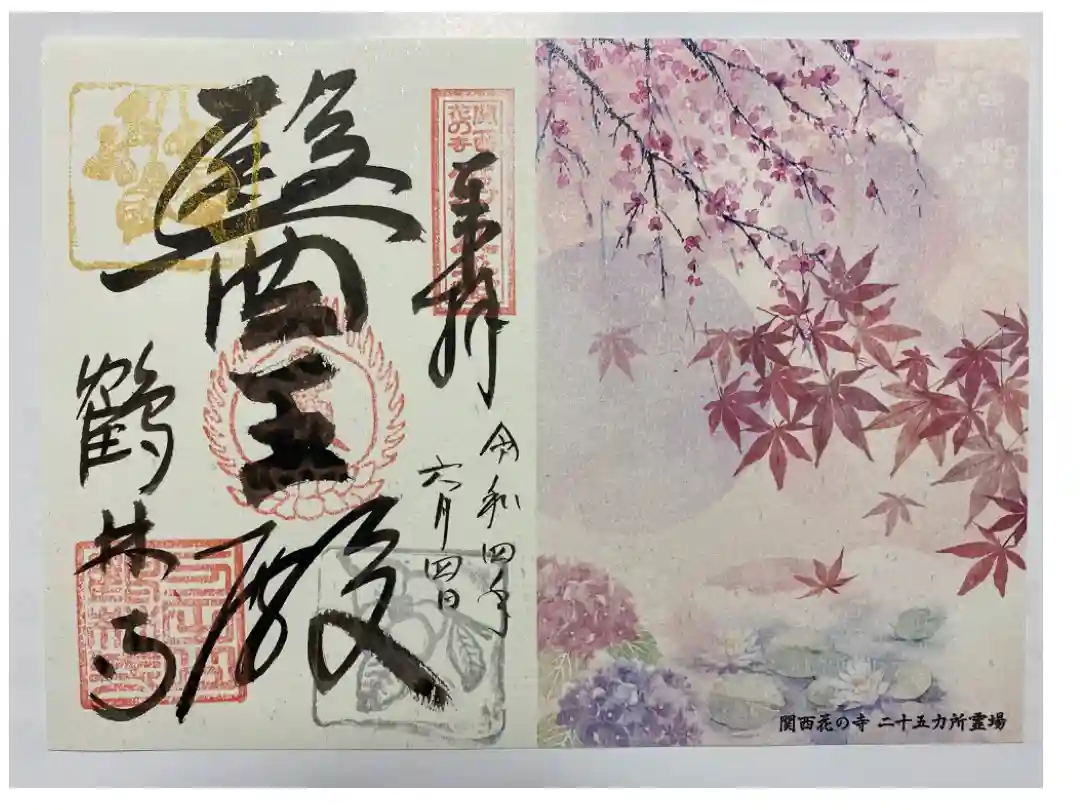 関西花の寺
奉拝
令和四年
六月四日
醫王殿
鶴林寺
関西花の寺 二十五カ所霊場